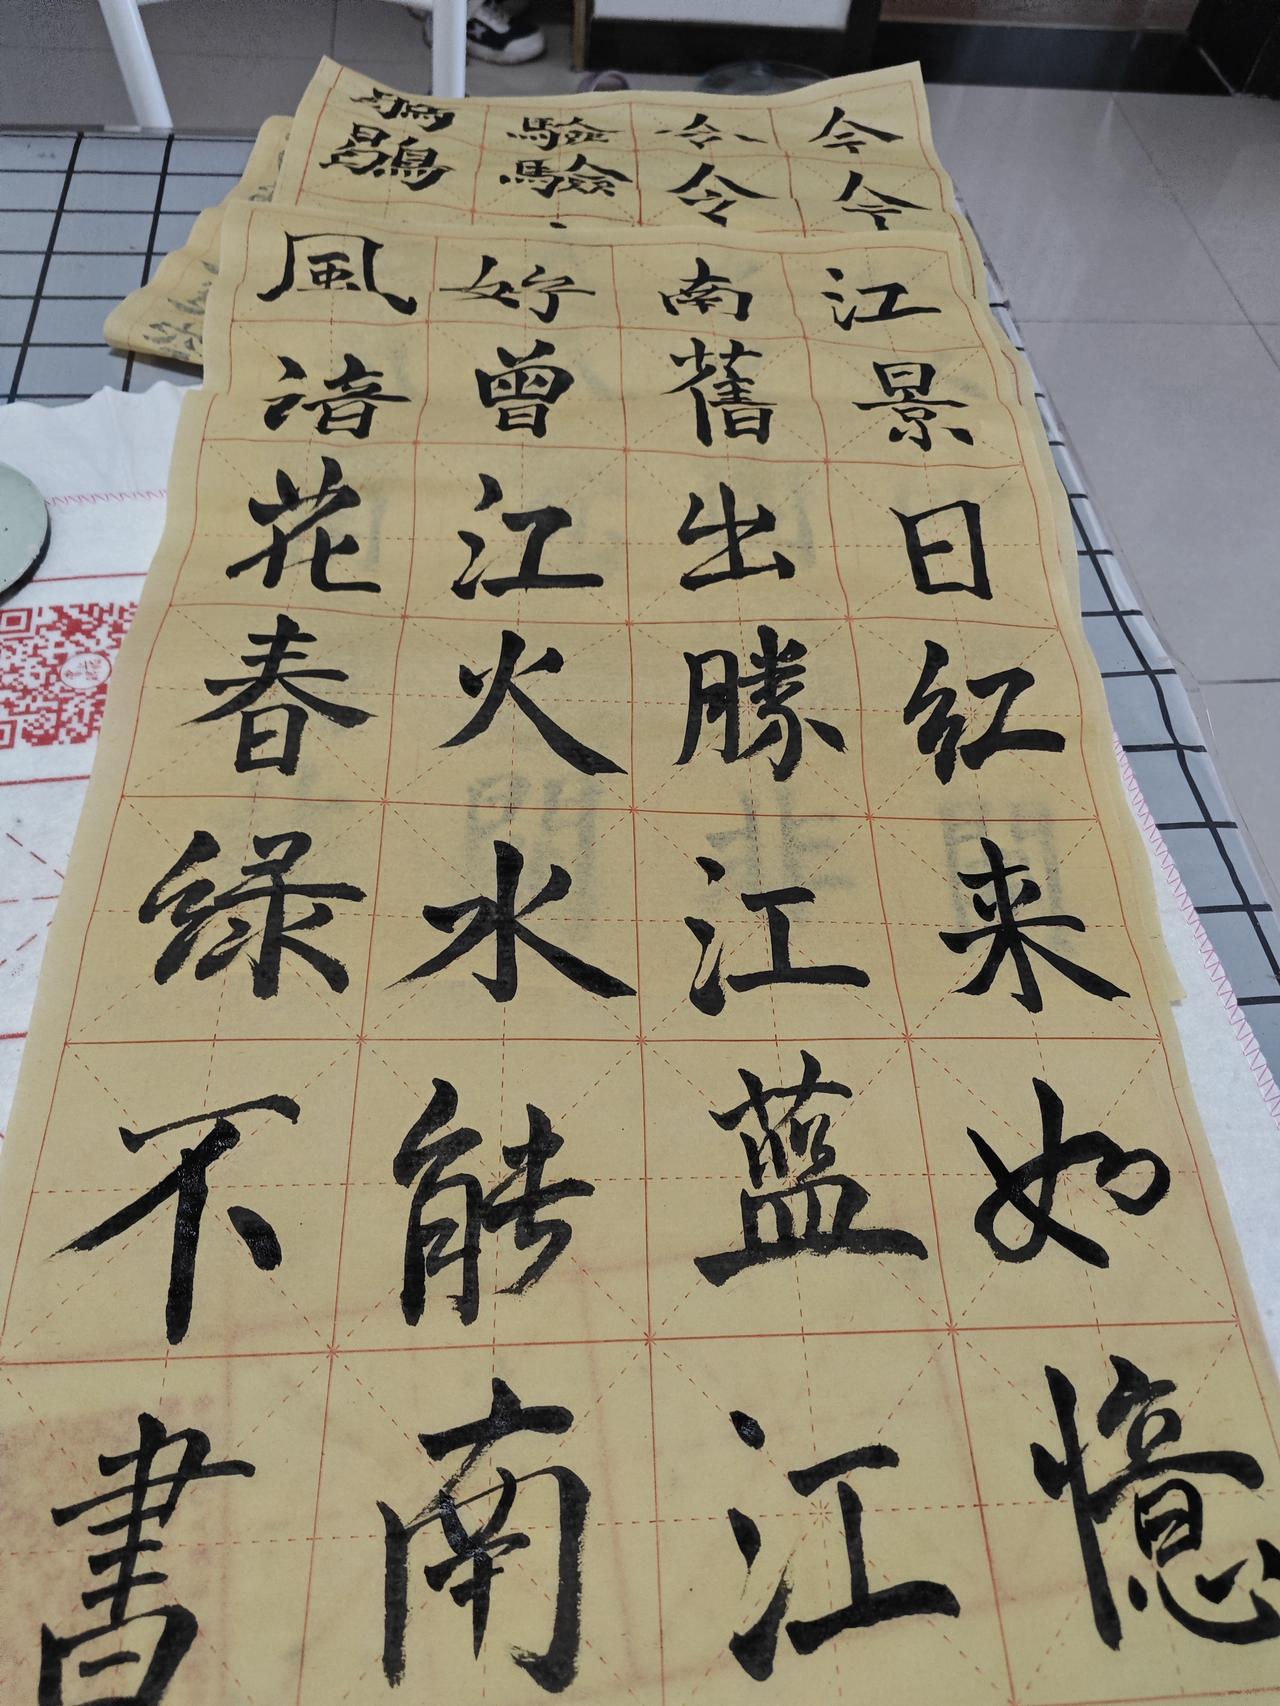 今令驗
今令驗
江南好風
景舊曾谙
日出江花
红勝火春
来江水绿
如蓝能不
憶江南書